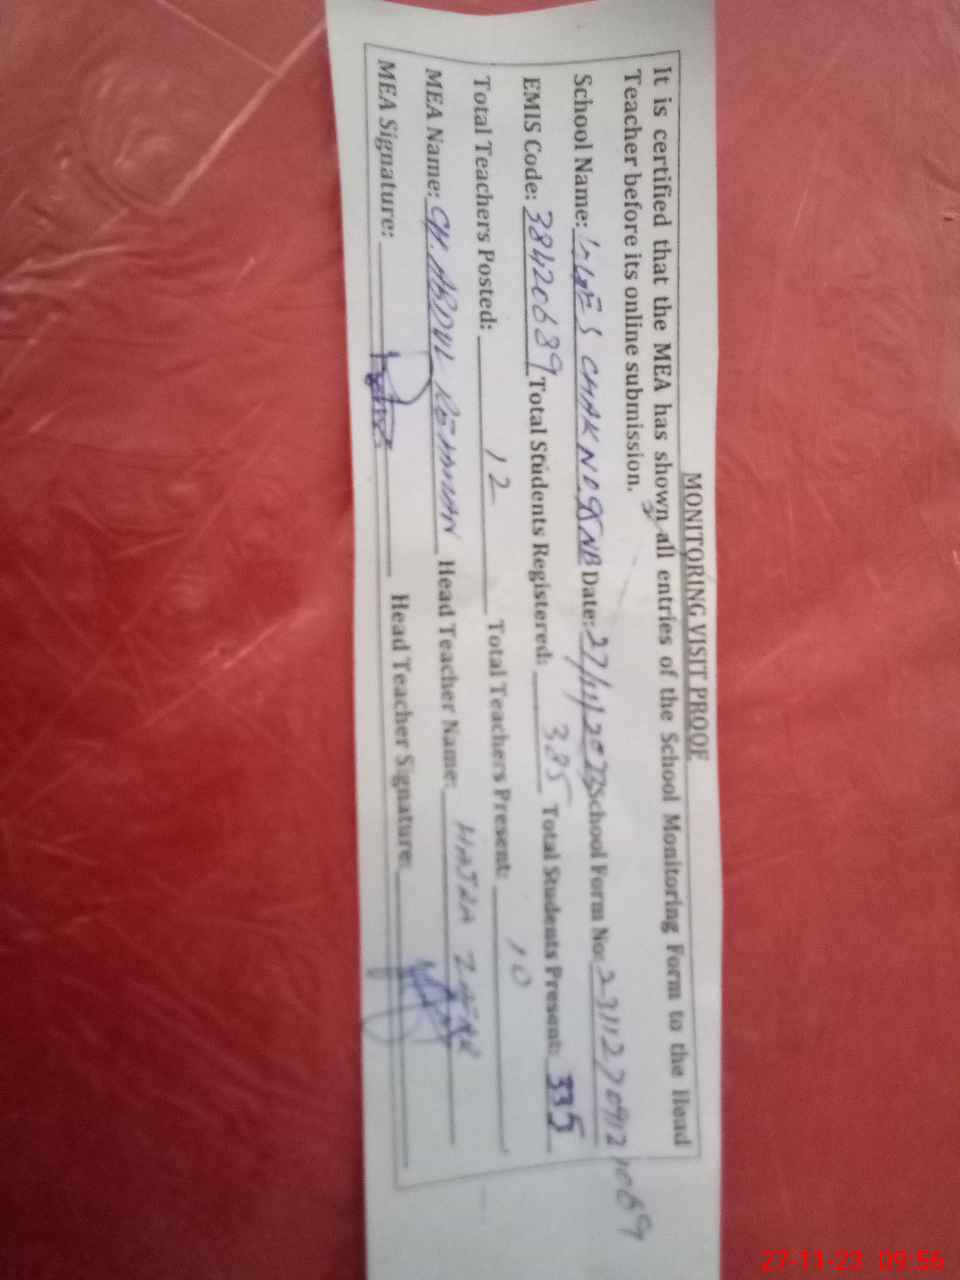 MONITORING VISIT PROOF
It is certified that the MEA has shown all entries of the School Monitoring Form to the Head
Teacher before its online submission.
School Name: CHAK NO. NB Date: 27/11/2023 School Form No: 231127091
EMIS Code: 38420639 Total Students Registered: 385 Total Students Present: 335
Total Teachers Posted: 12 Total Teachers Present: 10
MEA Name: CH. ABDUL REHMAN Head Teacher Name: HAJRA
MEA Signature: Head Teacher Signature:
27-11-23 09:56